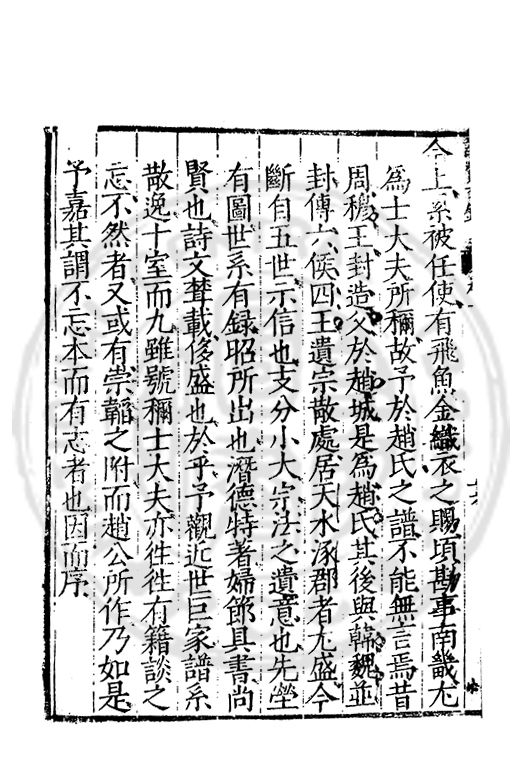 今上系被任使有飛魚金織衣之賜項勘事南畿尤
為士大夫所稱故予於趙氏之譜不能無言焉昔
周穆王封造父於趙城是為趙氏其後與韓魏並
封傳六侯四王遺宗散處居天水涿郡者尤盛今
斷自五世示信也支分小大宗法之遺意也先塋
有圖世系有録昭所出也潛德特著婦節具書尚
賢也詩文聱載侈盛也於乎予觀近世巨家譜系
散逸十室而九雖號稱士大夫亦徃徃有籍談之
忘不然者又或有崇韜之附而趙公所作乃如是
予嘉其謂不忘本而有志者也因而序